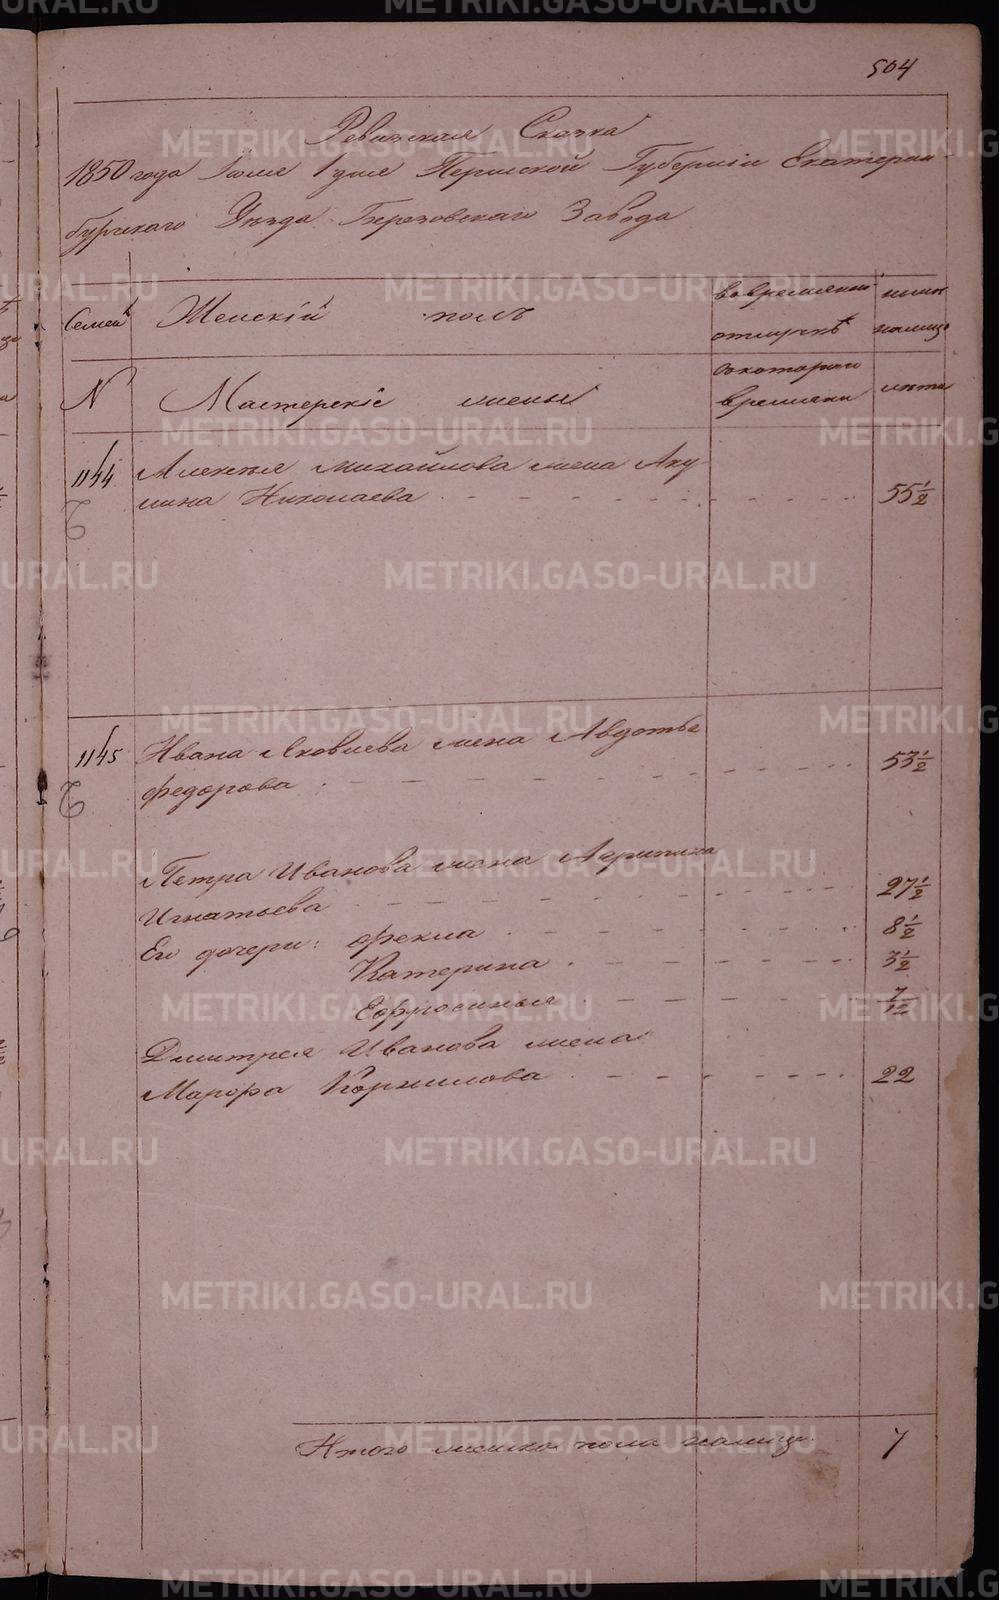 504
Ревизская Сказка
1850 года Июля 1 дня Пермской Губернии Екатерин
бургскаго Уезда Березовскаго Завода
Семей Женскій полъ во временной ныне
отлучкѣ налицо
N Мастерскіе жены съ котораго лета
времени
1144 Алексея Михайлова жена Аку
лина Николаева 55 1/2
1145 Ивана Яковлева жена Авдотья
Федорова 53 1/2
Петра Иванова жена Агрипина
Игнатьева 27 1/2
Ея дочери: Фекла 8 1/2
Катерина 3 1/2
Ефросинья 7/12
Дмитрея Иванова жена
Марфа Корнилова 22
Итого женска пола налицо 7
METRIKI.GASO-URAL.RU